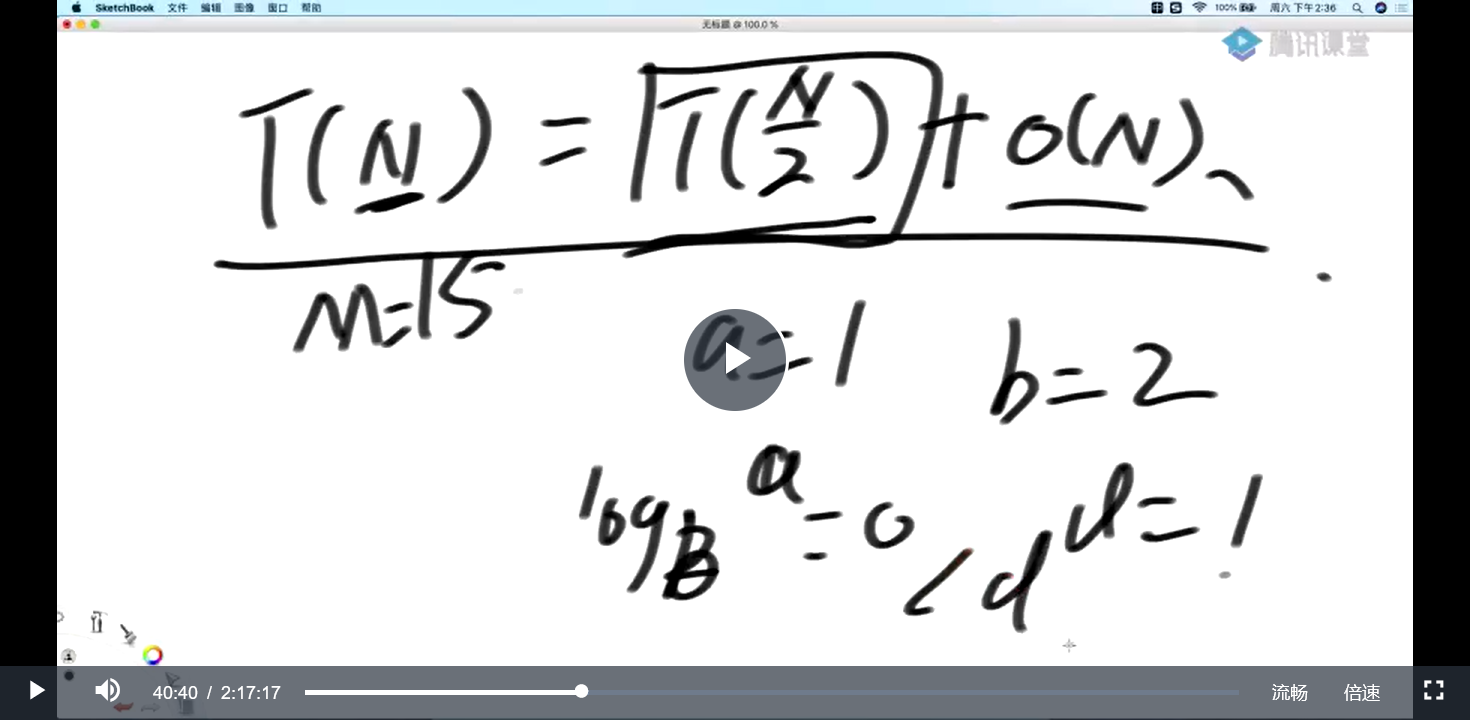 SketchBook 文件 编辑 图像 窗口 帮助 100% 周六 下午2:36
无标题 @ 100.0 %
腾讯课堂
T(N) = T(N/2) + O(N)、
N=15
a=1 b=2
log_B a = 0 < d d=1
40:40 / 2:17:17 流畅 倍速